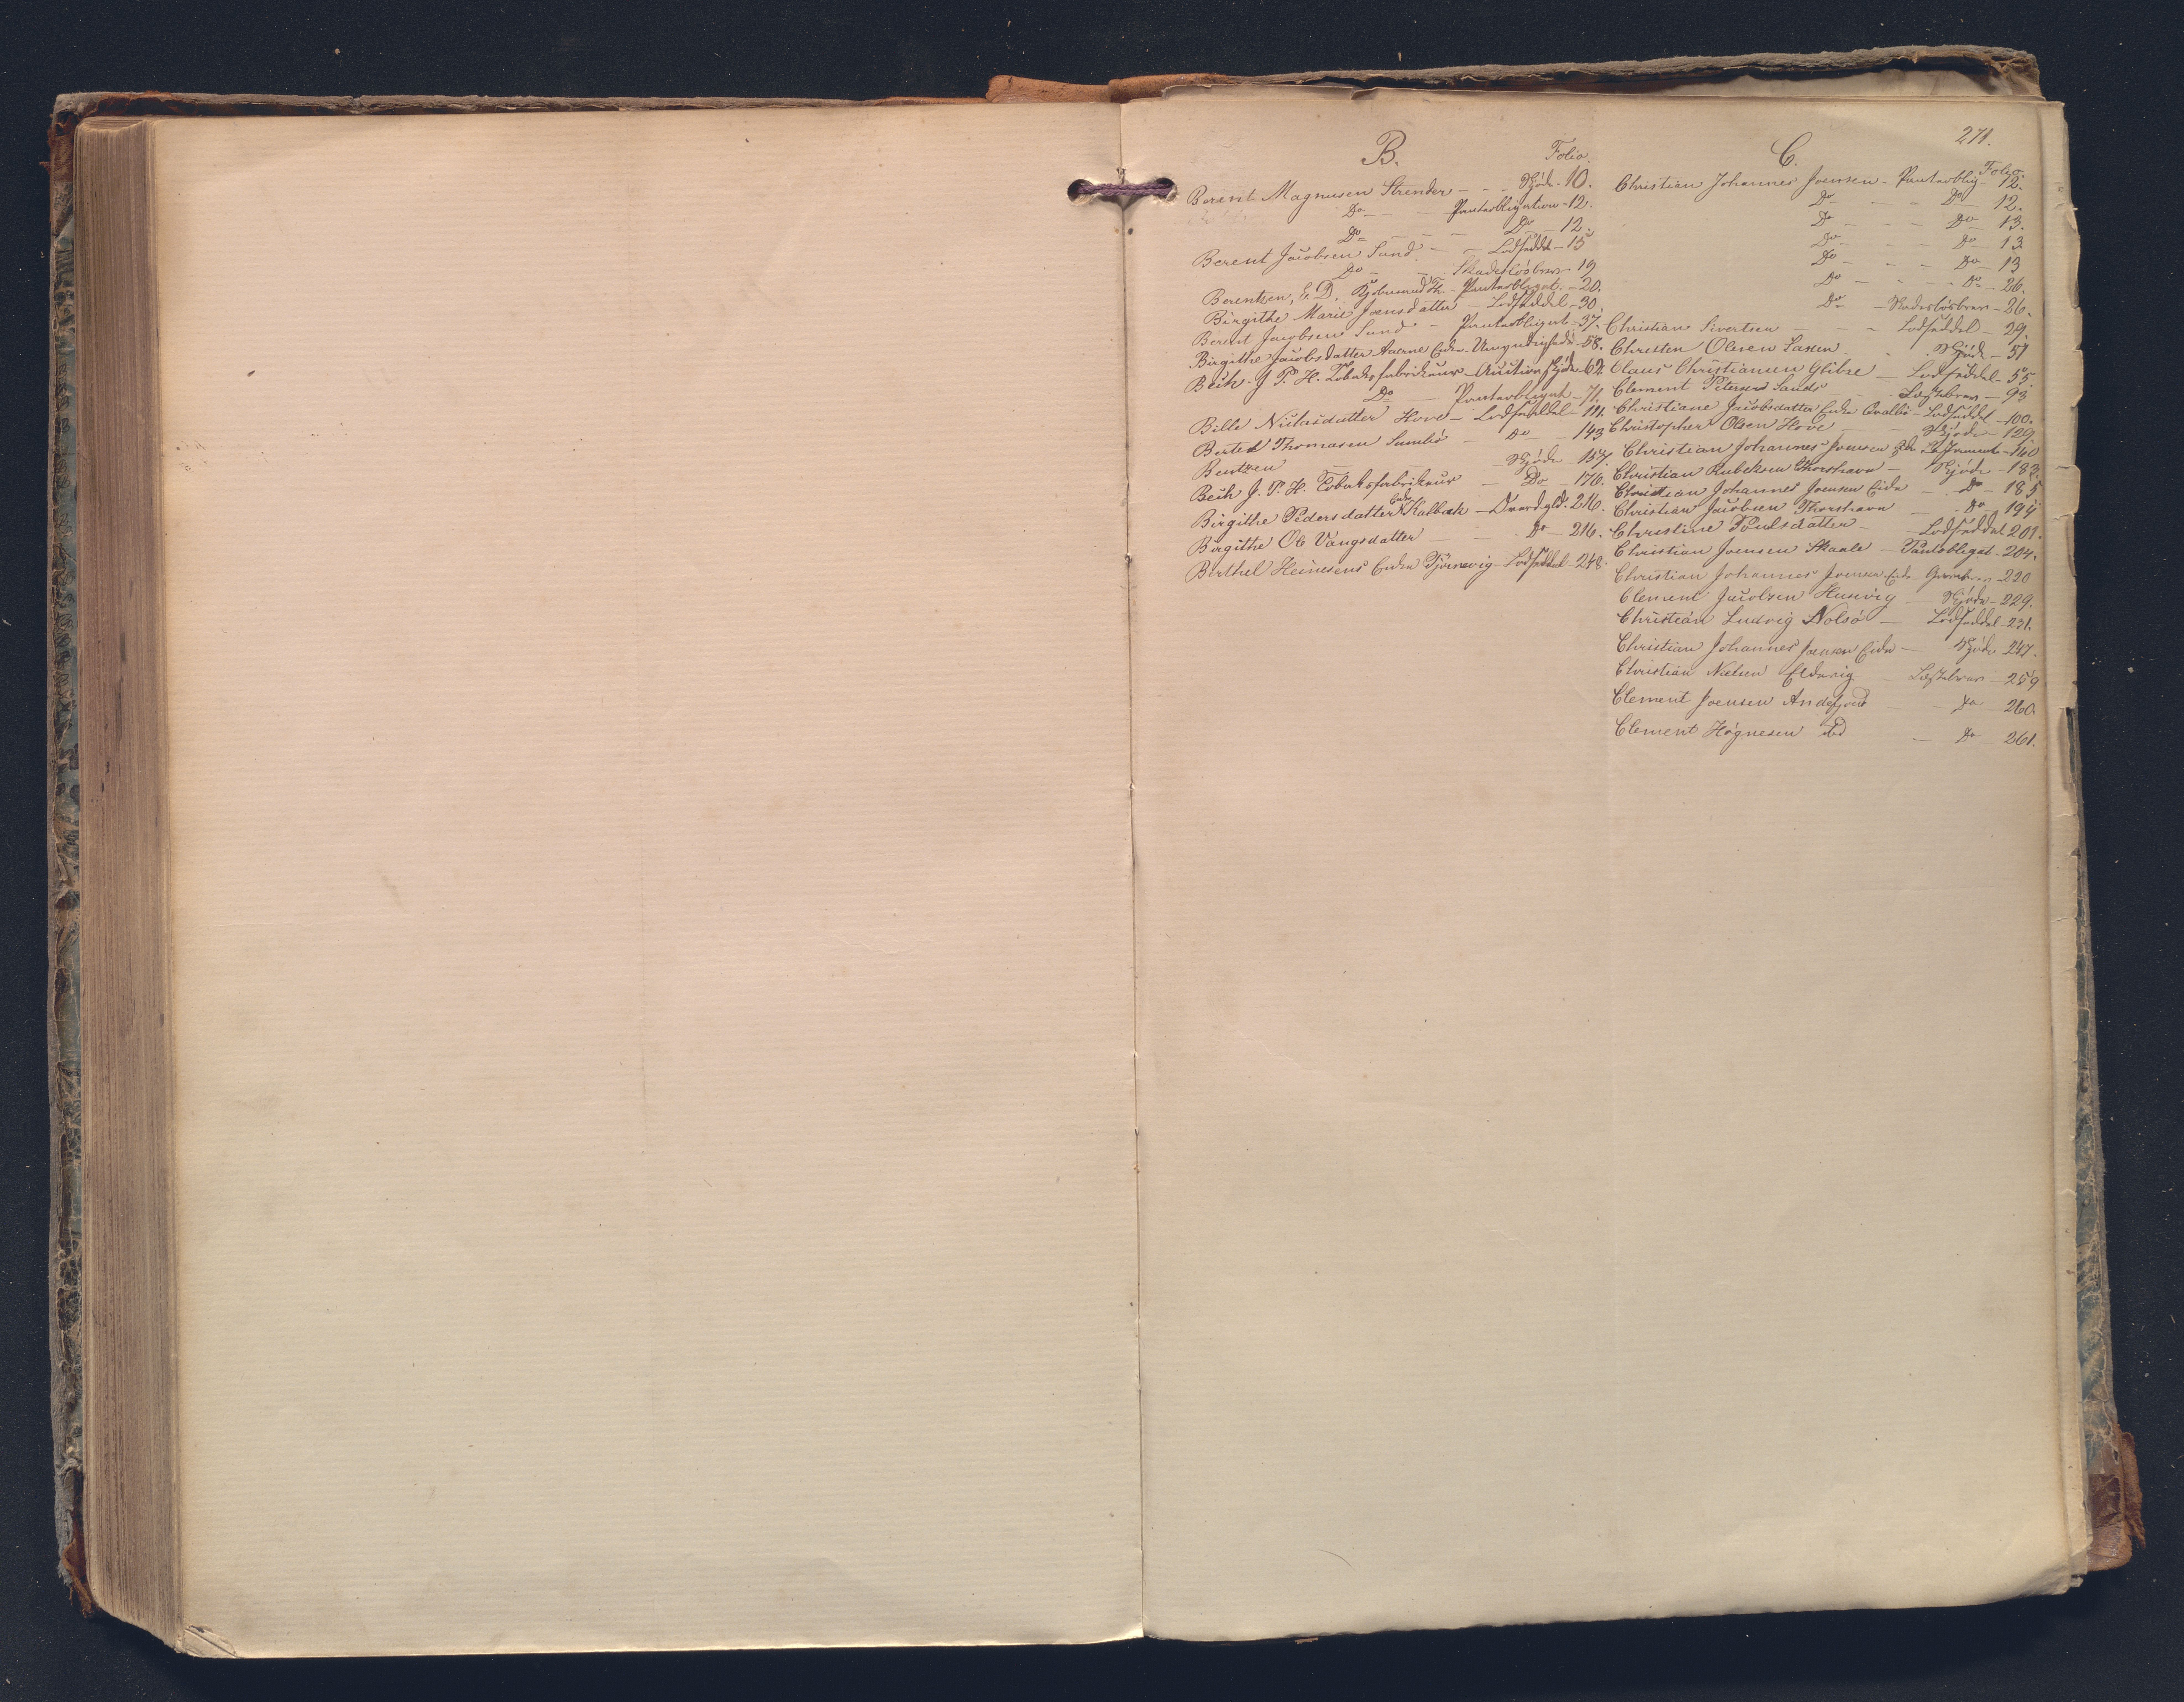 271.
B.
Folio.
Berent Magnusen Strender - - Skjøde - 10.
Do - - Panteobligation - 12.
Do - - - Do - 12.
Berent Jacobsen Sund - - Lodseddel - 15
Do - - Skadesløsbrev - 19
Berentzen, E. D. Kjøbmand Th. - Panteobligat. - 20.
Birgithe Marie Joensdatter - Lodseddel - 30.
Berent Jacobsen Sund - Panteobligat - 37.
Birgithe Jacobsdatter Eide - Umyndighed - 58.
Beck J. P. H. Tobaksfabrikeur - Auctionsskjøde - 62.
Do - Panteobligat - 71.
Bille Niclasdatter Hove - Lodseddel - 111.
Bertel Thomasen Sumbø - Do - 143
Bentzen - Skjøde 157.
Beck J. P. H. Tobaksfabrikeur - Do - 176.
Birgithe Pedersdatter Kalbak - 216.
Birgithe Ole Vangsdatter - - Do - 216.
Birthel Heinesens Enke Tjørnevig - Lodseddel - 248.
C.
Folio.
Christian Johannes Joensen - Panteoblig - 12.
Do - - - Do - 12.
Do - - - Do - 13.
Do - - - Do - 13
Do - - - Do - 13
Do - - - Do - 26.
Do - Skadesløsbrev - 26.
Christian Sivertsen - - - Lodseddel - 29.
Christen Olesen Saxen - - Skjøde - 51
Claus Christiansen Glibre - Lodseddel - 55.
Clement Petersen Sands - Festebrev - 93
Christiane Jacobsdatter Qvalbø - Lodseddel - 100.
Christopher Olsen Hove - - Skjøde - 129
Christian Johannes Joensen Eide - 160
Christian Rubeksen Thorshavn - Skjøde - 183.
Christian Johannes Joensen Eide - Do - 185
Christian Jacobsen Thorshavn - Do - 194
Christine Poulsdatter - Lodseddel 201.
Christian Joensen Skaale - Panteobligat - 204.
Christian Johannes Joensen Eide - 220
Clement Jacobsen Husevig - Skjøde - 229.
Christian Ludvig Nolsø - Lodseddel - 231.
Christian Johannes Joensen Eide - Skjøde 247.
Christian Nielsen Eldevig - Festebrev - 259
Clement Joensen Andefjord - - Do - 260.
Clement Høgnesen ibd - Do - 261.